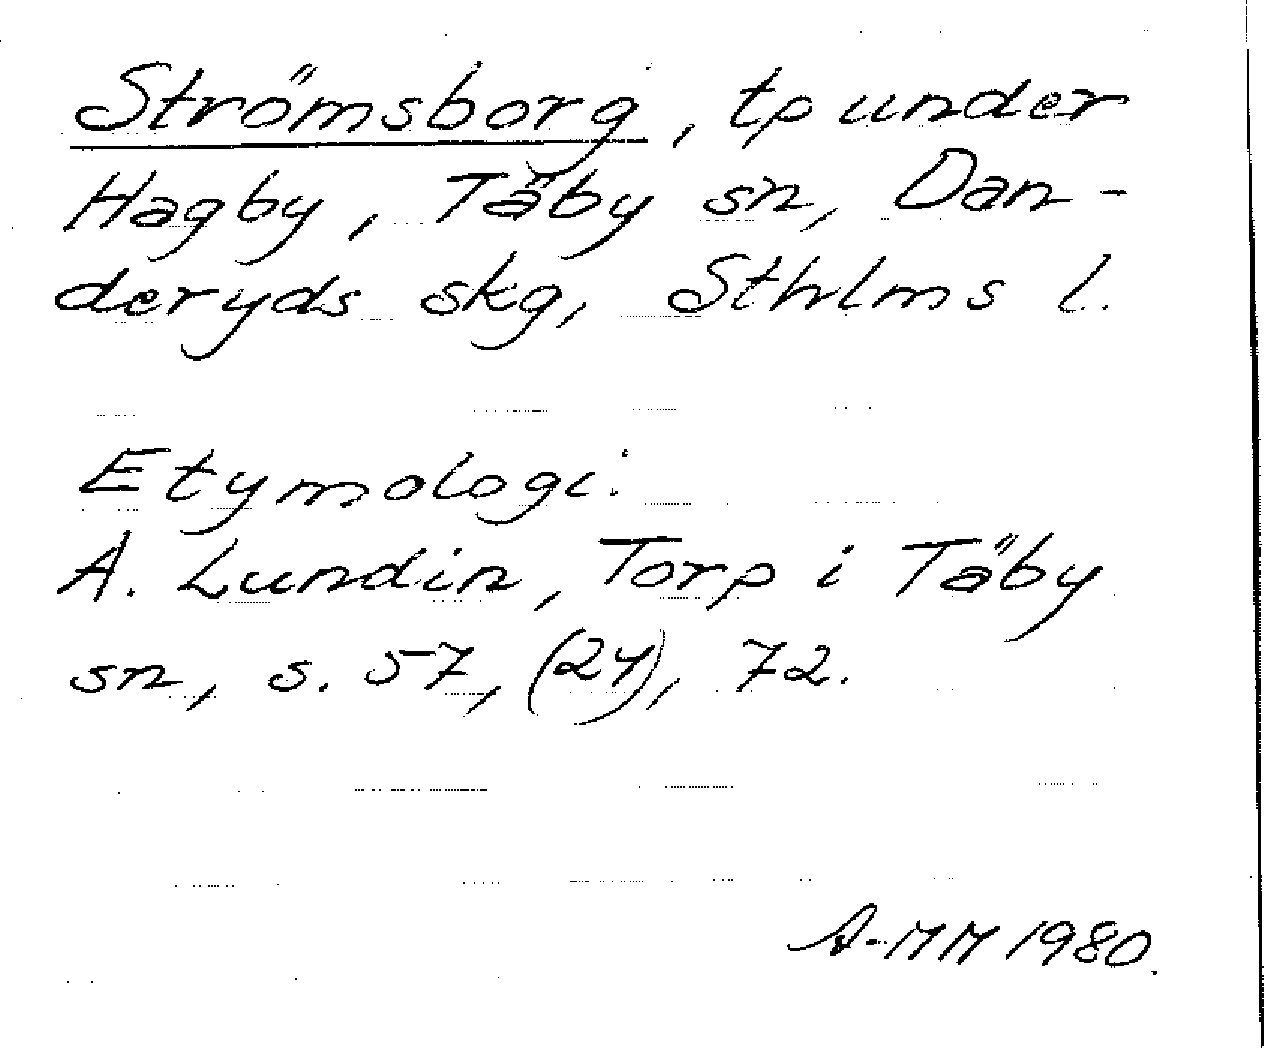 Strömsborg, tp under
Hagby, Täby sn, Dan-
deryds skg, Sthlms l.
Etymologi:
A. Lundin, Torp i Täby
sn, s. 57, (24), 72.
A-MM 1980.